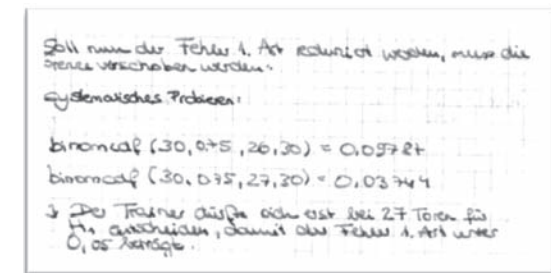 Soll nun der Fehler 1. Art reduziert werden, muss die
Grenze verschoben werden:
Systematisches Probieren:
binomcdf (30, 0.75, 26, 30) = 0,09787
binomcdf (30, 0.75, 27, 30) = 0,03744
Der Trainer dürfte sich erst bei 27 Toren für
H₁ entscheiden, damit der Fehler 1. Art unter
0,05 beträgt.